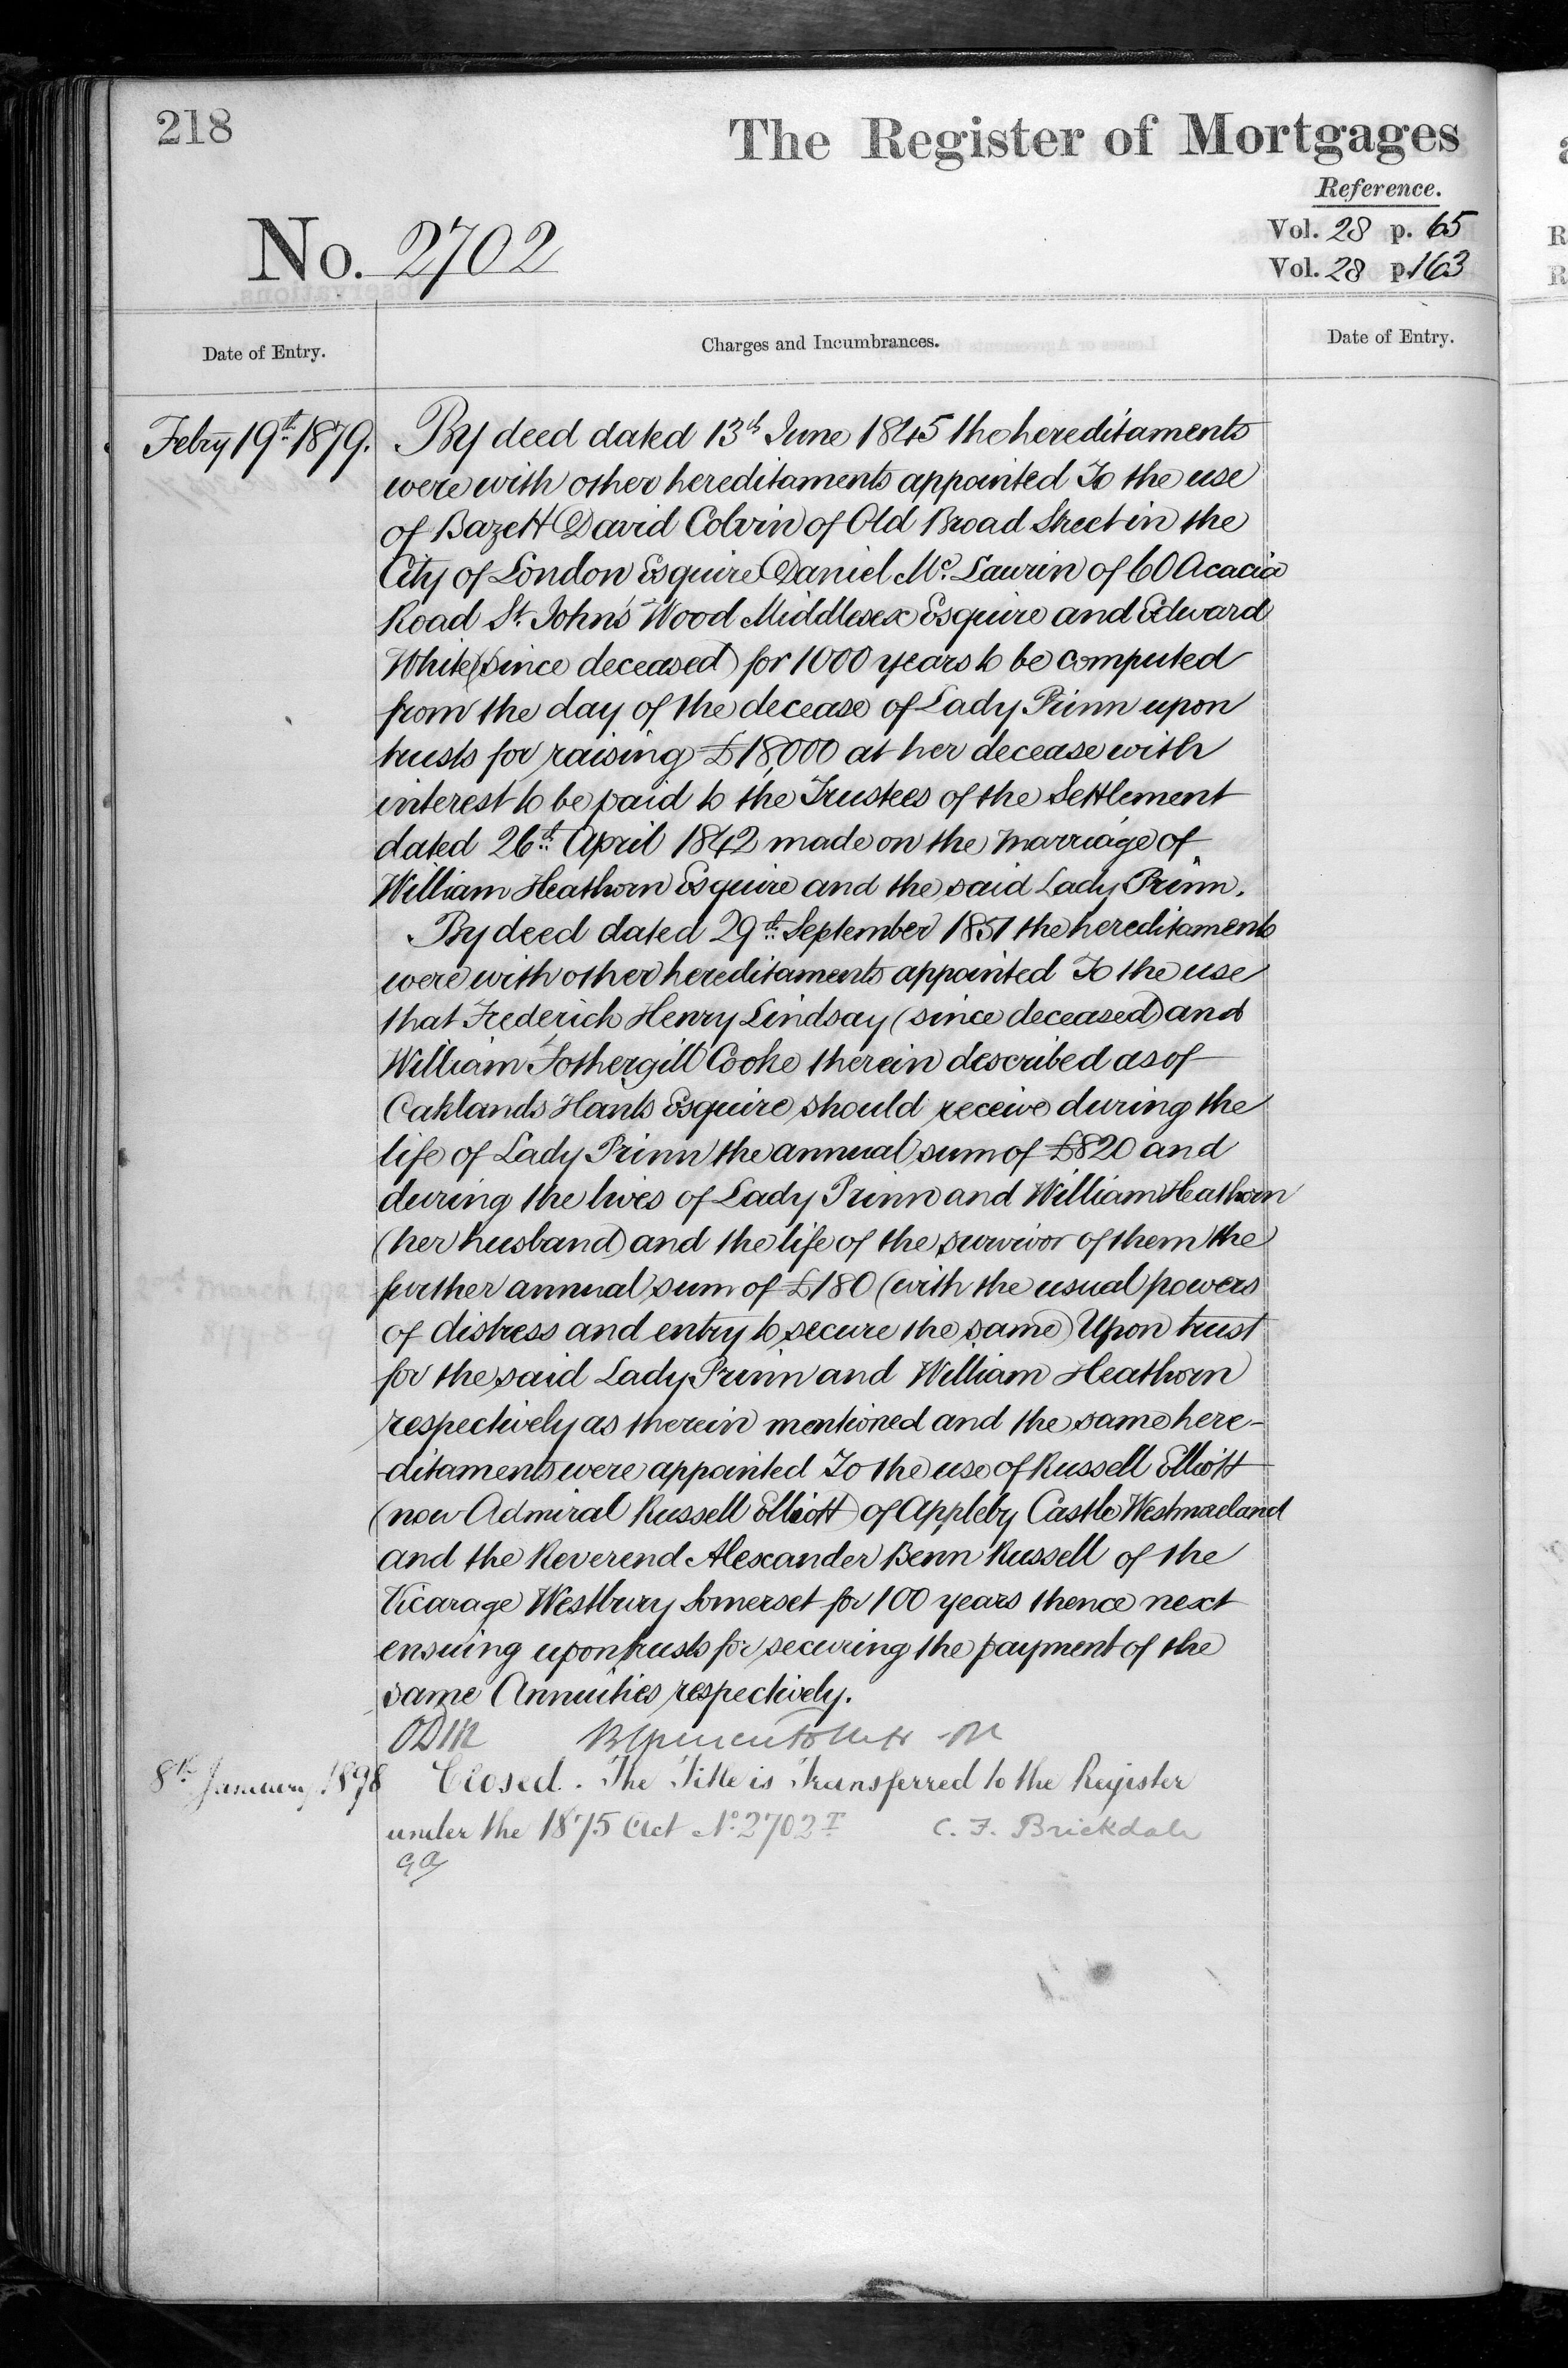 218
The Register of Mortgages
Reference.
No. 2702
Vol. 28 p. 65
Vol. 28 p. 163
Date of Entry.
Charges and Incumbrances.
Date of Entry.
Febry 19th 1879.
By deed dated 13th June 1845 the hereditaments
were with other hereditaments appointed To the use
of Bazett David Colvin of Old Broad Street in the
City of London Esquire Daniel Mc. Laurin of 60 Acacia
Road St. John's Wood Middlesex Esquire and Edward
White (since deceased) for 1000 years to be computed
from the day of the decease of Lady Prinn upon
trusts for raising £18,000 at her decease with
interest to be paid to the Trustees of the Settlement
dated 26th April 1842 made on the marriage of
William Heathorn Esquire and the said Lady Prinn.
By deed dated 29th September 1851 the hereditaments
were with other hereditaments appointed To the use
that Frederick Henry Lindsay (since deceased) and
William Fothergill Cooke therein described as of
Oaklands Hants Esquire should receive during the
life of Lady Prinn the annual sum of £820 and
during the lives of Lady Prinn and William Heathorn
(her husband) and the life of the survivor of them the
further annual sum of £180 (with the usual powers
of distress and entry to secure the same) Upon trust
for the said Lady Prinn and William Heathorn
respectively as therein mentioned and the same here-
-ditaments were appointed To the use of Russell Elliott
(now Admiral Russell Elliott) of Appleby Castle Westmorland
and the Reverend Alexander Benn Russell of the
Vicarage Westbury Somerset for 100 years thence next
ensuing upon trusts for securing the payment of the
same Annuities respectively.
8th January 1898
Closed. The Title is Transferred to the Register
under the 1875 Act No. 2702 T C. F. Brickdale